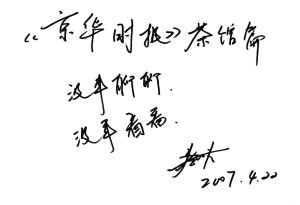 《京华时报》茶馆篇
没事聊聊.
没事看看.
2007.4.20